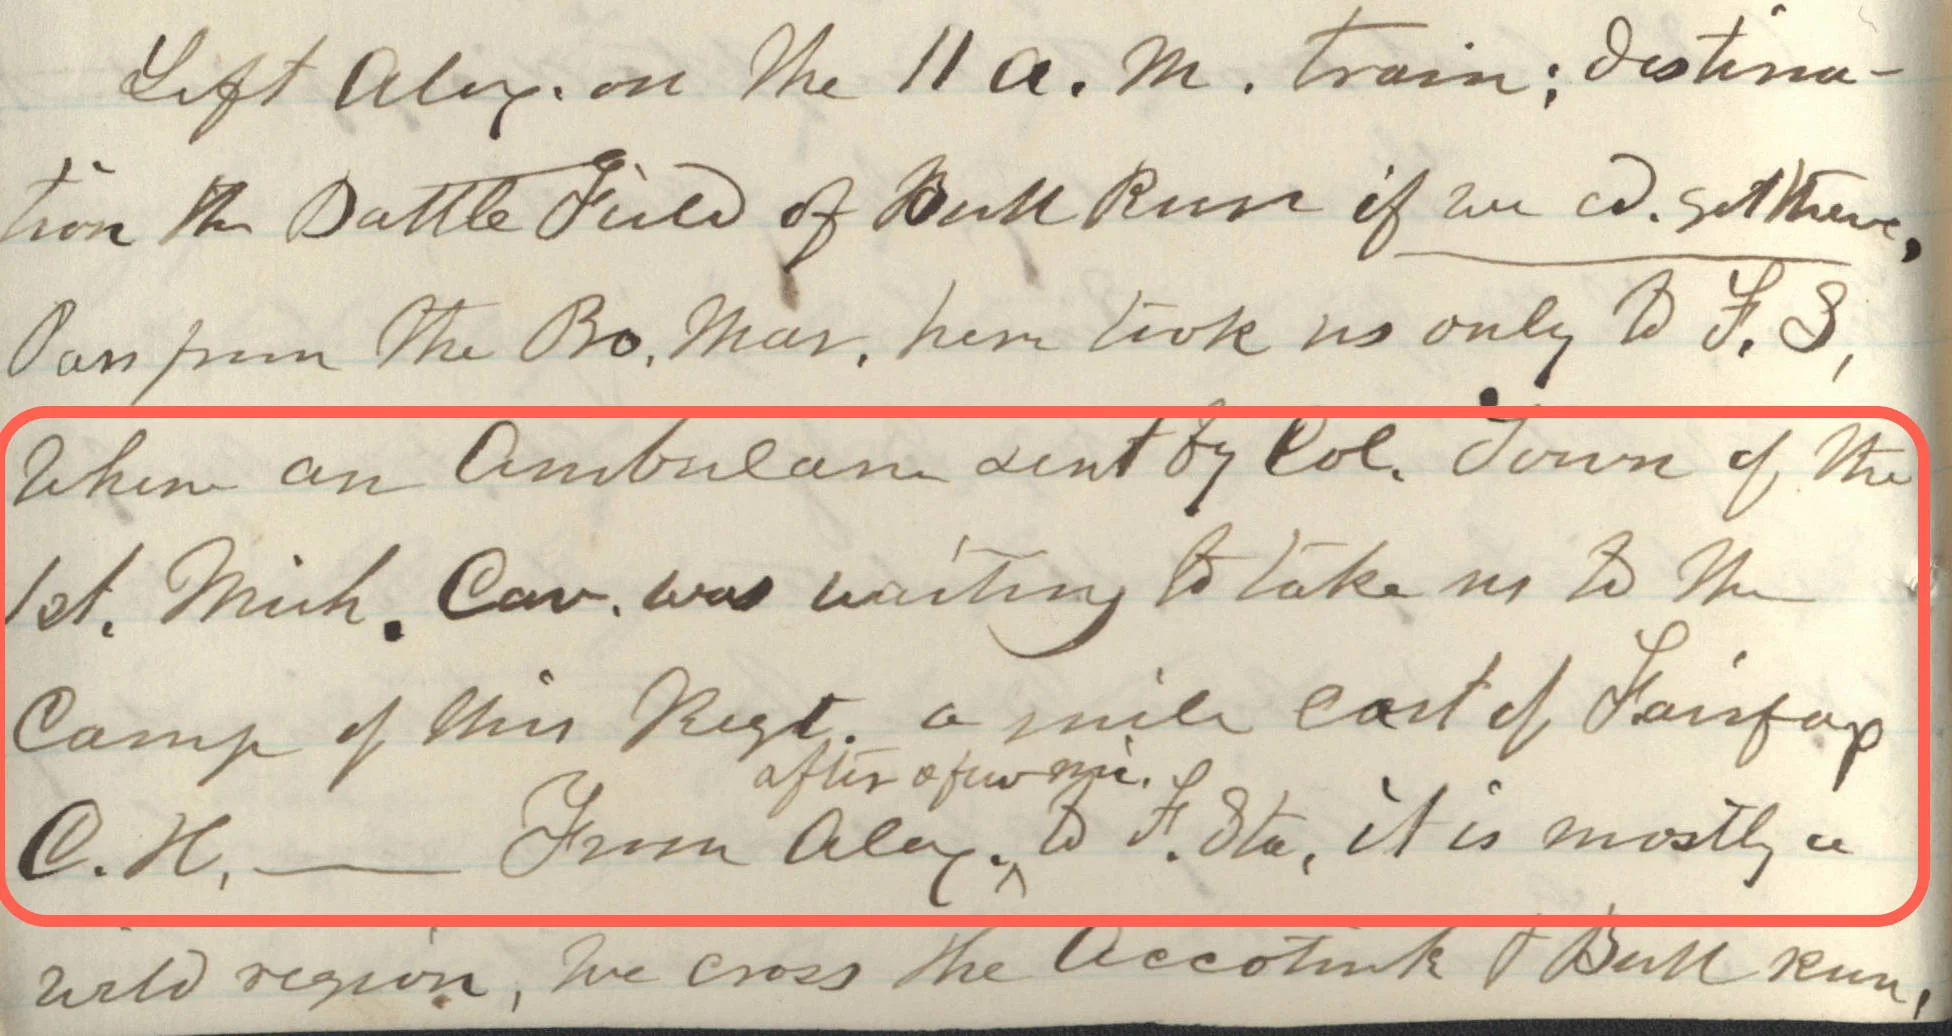 Left Alex. on the 11 A. M. train; destina-
tion the Battle Field of Bull Run if we cd. get there,
Pass from the Pro. Mar. here took us only to F. S,
Where an Ambulance sent by Col. Town of the
1st. Mich. Cav. was waiting to take us to the
Camp of this Regt. a mile east of Fairfax
after a few mi.
C. H, — From Alex. ^ to F. Sta, it is mostly a
wild region, we cross the Accotink & Bull Run,